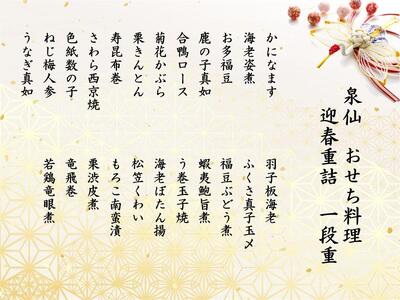 泉仙　おせち料理
迎春重詰　一段重
かになます
海老姿煮
お多福豆
鹿の子真如
合鴨ロース
菊花かぶら
栗きんとん
寿昆布巻
さわら西京焼
色紙数の子
ねじ梅人参
うなぎ真如
羽子板海老
ふくさ真子玉〆
福豆ぶどう煮
蝦夷鮑旨煮
う巻玉子焼
海老ぼたん揚
松笠くわい
もろこ南蛮漬
栗渋皮煮
竜飛巻
若鶏竜眼煮